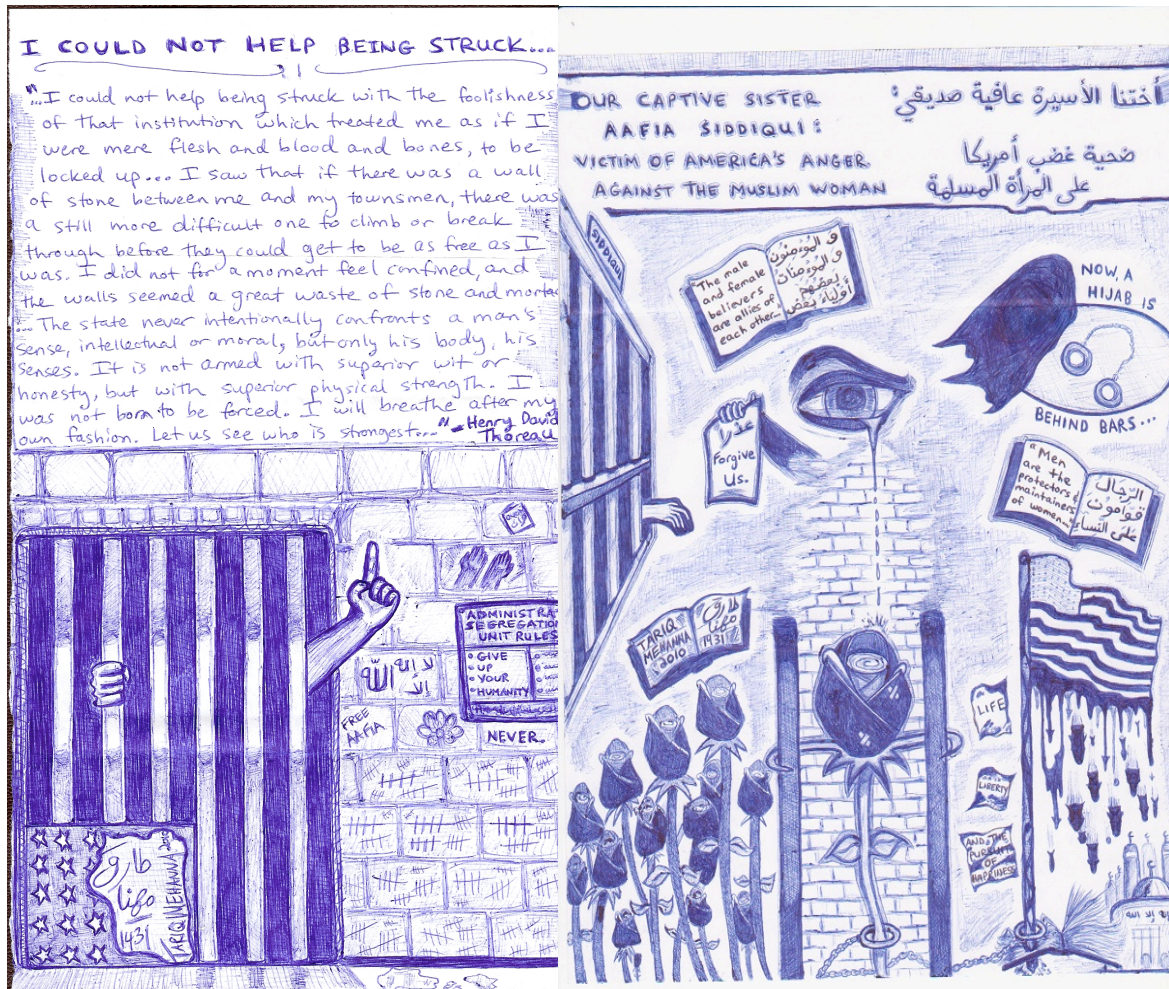 I COULD NOT HELP BEING STRUCK...
"...I could not help being struck with the foolishness
of that institution which treated me as if I
were mere flesh and blood and bones, to be
locked up... I saw that if there was a wall
of stone between me and my townsmen, there was
a still more difficult one to climb or break
through before they could get to be as free as I
was. I did not for a moment feel confined, and
the walls seemed a great waste of stone and mortar
... The state never intentionally confronts a man's
sense, intellectual or moral, but only his body, his
senses. It is not armed with superior wit or
honesty, but with superior physical strength. I
was not born to be forced. I will breathe after my
own fashion. Let us see who is strongest..." - Henry David
Thoreau
ADMINISTRA
SEGREGATION
UNIT RULES
• GIVE
• UP
• YOUR
• HUMANITY
لا إله
إلا الله
FREE
AAFIA
NEVER.
طارق
مهنا
1431
TARIQ MEHANNA 2010
OUR CAPTIVE SISTER
AAFIA SIDDIQUI:
VICTIM OF AMERICA'S ANGER
AGAINST THE MUSLIM WOMAN
أختنا الأسيرة عافية صديقي:
ضحية غضب أمريكا
على المرأة المسلمة
SIDDIQUI
The male
and female
believers
are allies of
each other...
و المؤمنون
و المؤمنات
بعضهم
أولياء بعض
NOW, A
HIJAB IS
BEHIND BARS...
عذرا
Forgive
Us.
"Men
are the
protectors &
maintainers
of women..."
الرجال
قوامون
على النساء
TARIQ
MEHANNA
2010
طارق
مهنا
1431
LIFE
LIBERTY
AND THE
PURSUIT
OF
HAPPINESS